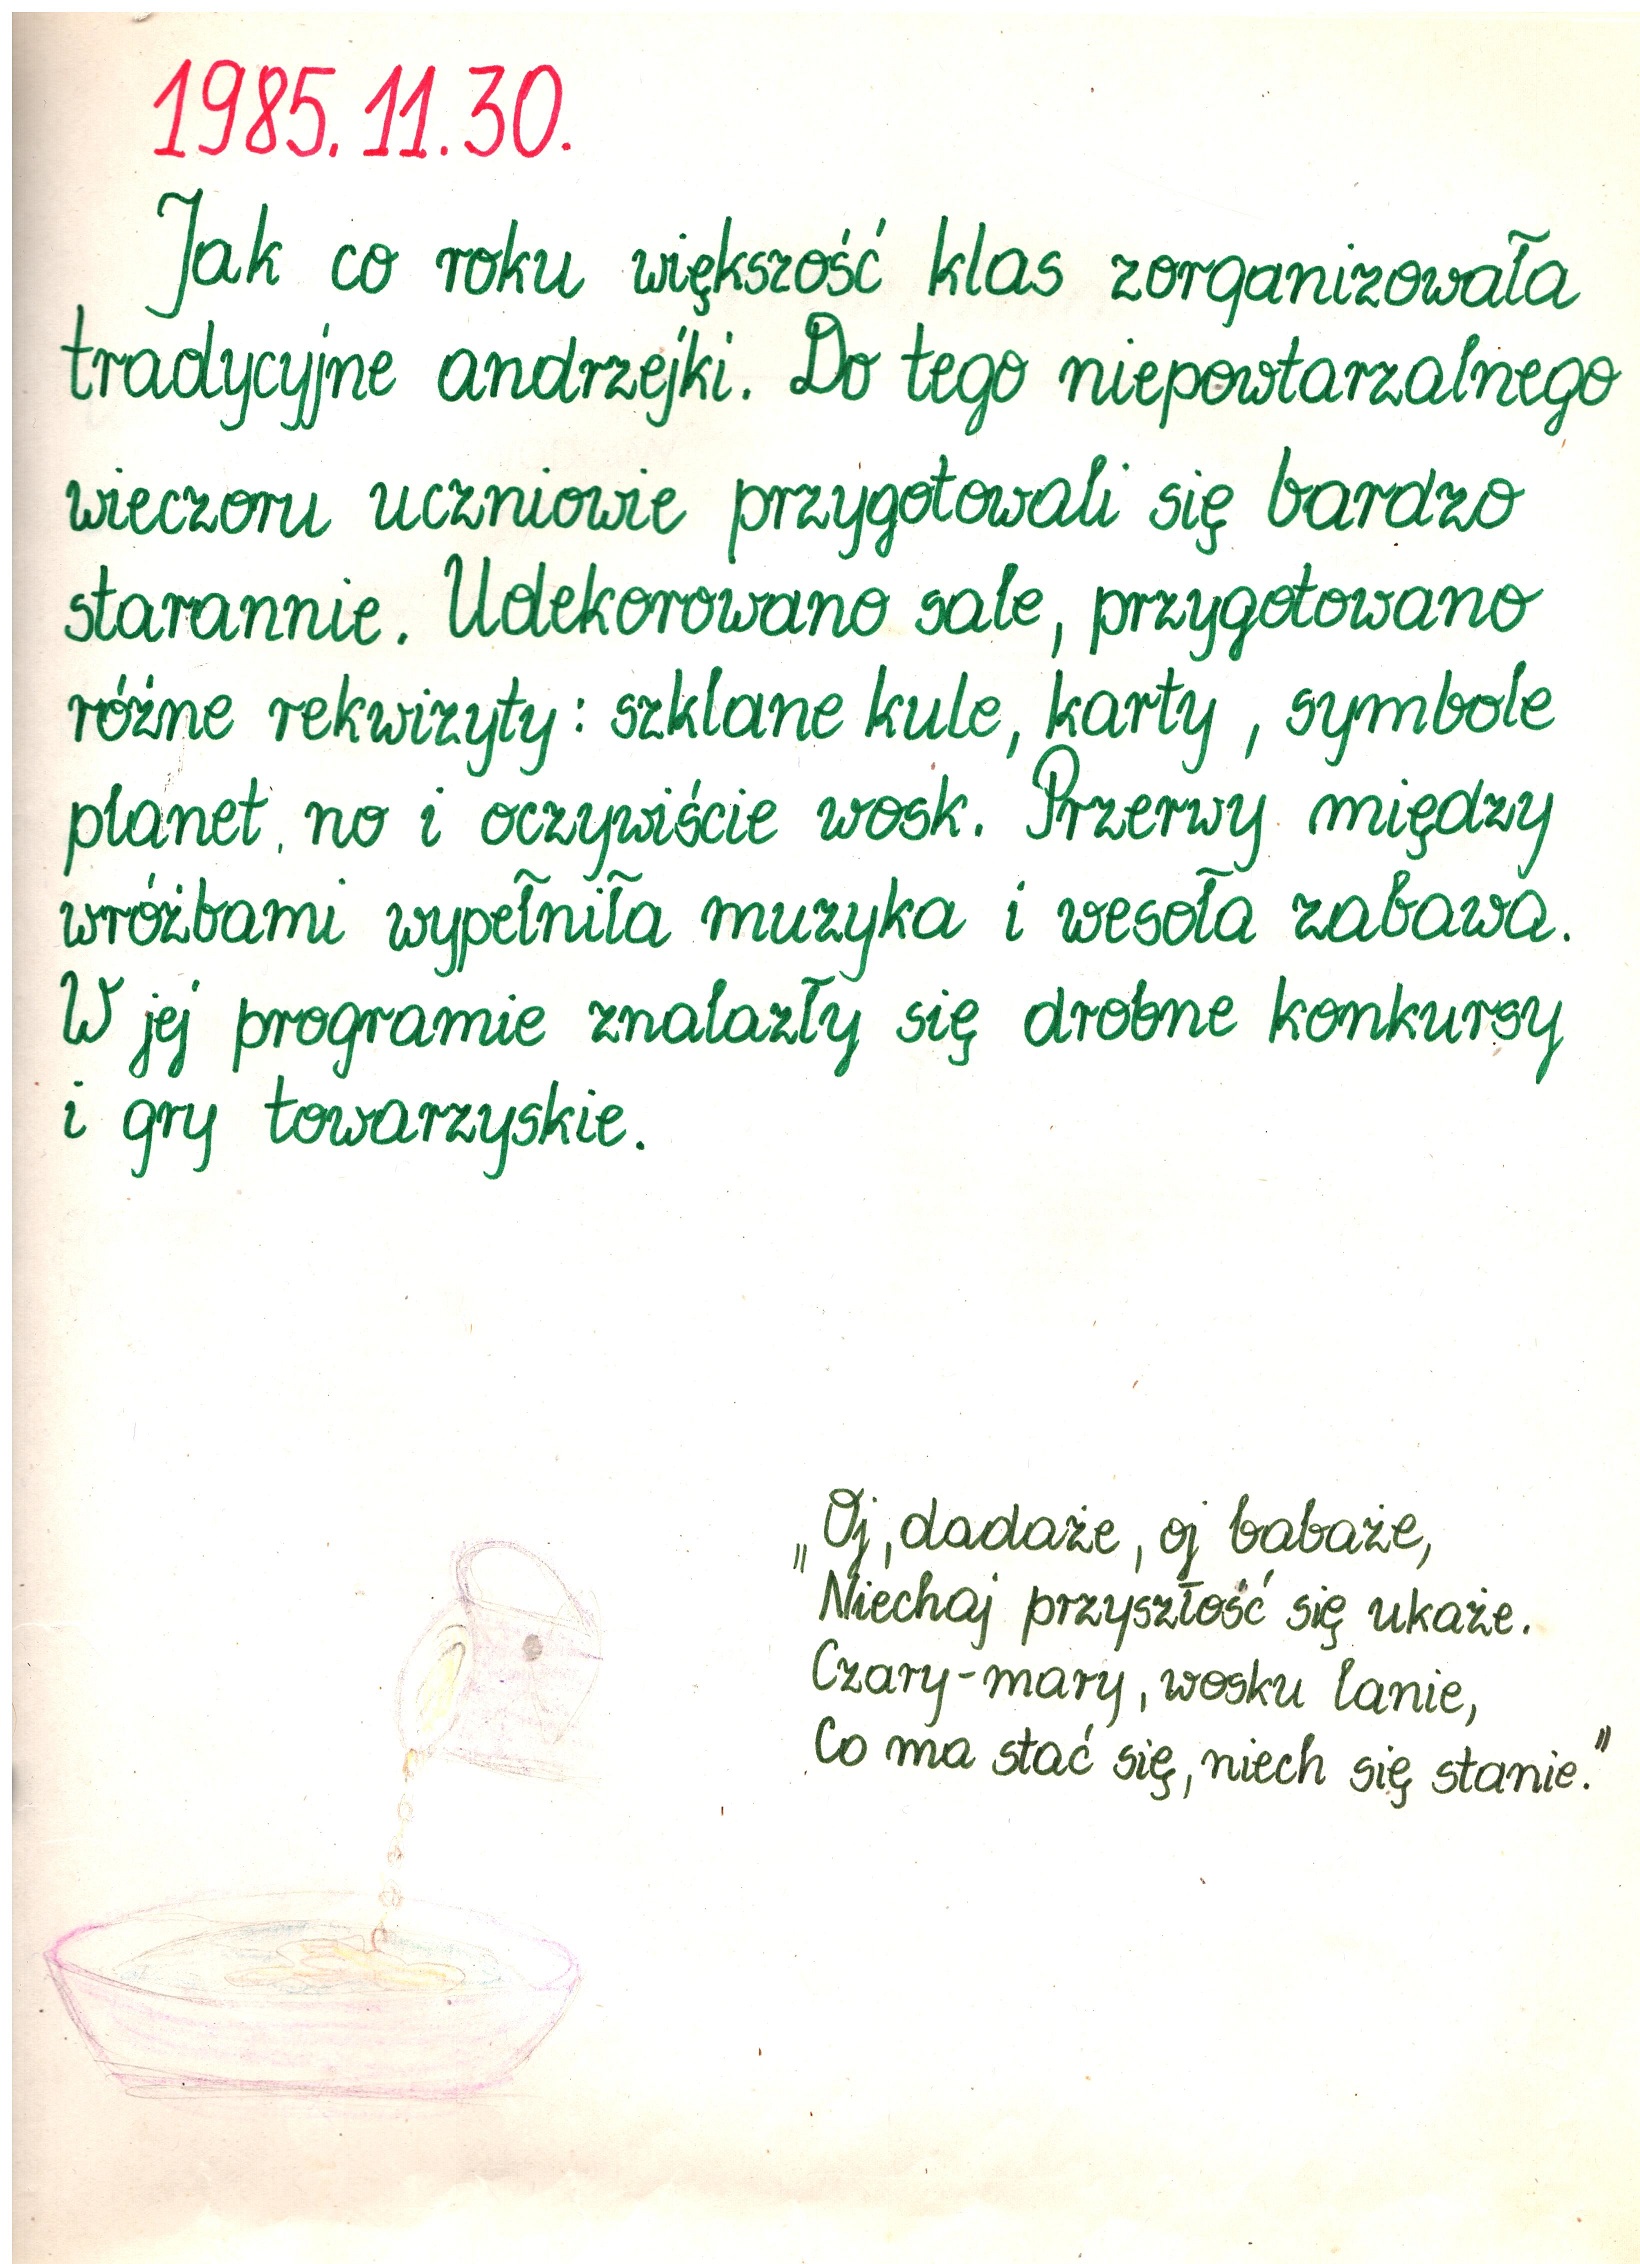 1985.11.30.
Jak co roku większość klas zorganizowała
tradycyjne andrzejki. Do tego niepowtarzalnego
wieczoru uczniowie przygotowali się bardzo
starannie. Udekorowano sale, przygotowano
różne rekwizyty: szklane kule, karty, symbole
planet, no i oczywiście wosk. Przerwy między
wróżbami wypełniła muzyka i wesoła zabawa.
W jej programie znalazły się drobne konkursy
i gry towarzyskie.
„Oj, dadaże, oj babaże,
Niechaj przyszłość się ukaże.
Czary-mary, wosku lanie,
Co ma stać się, niech się stanie."